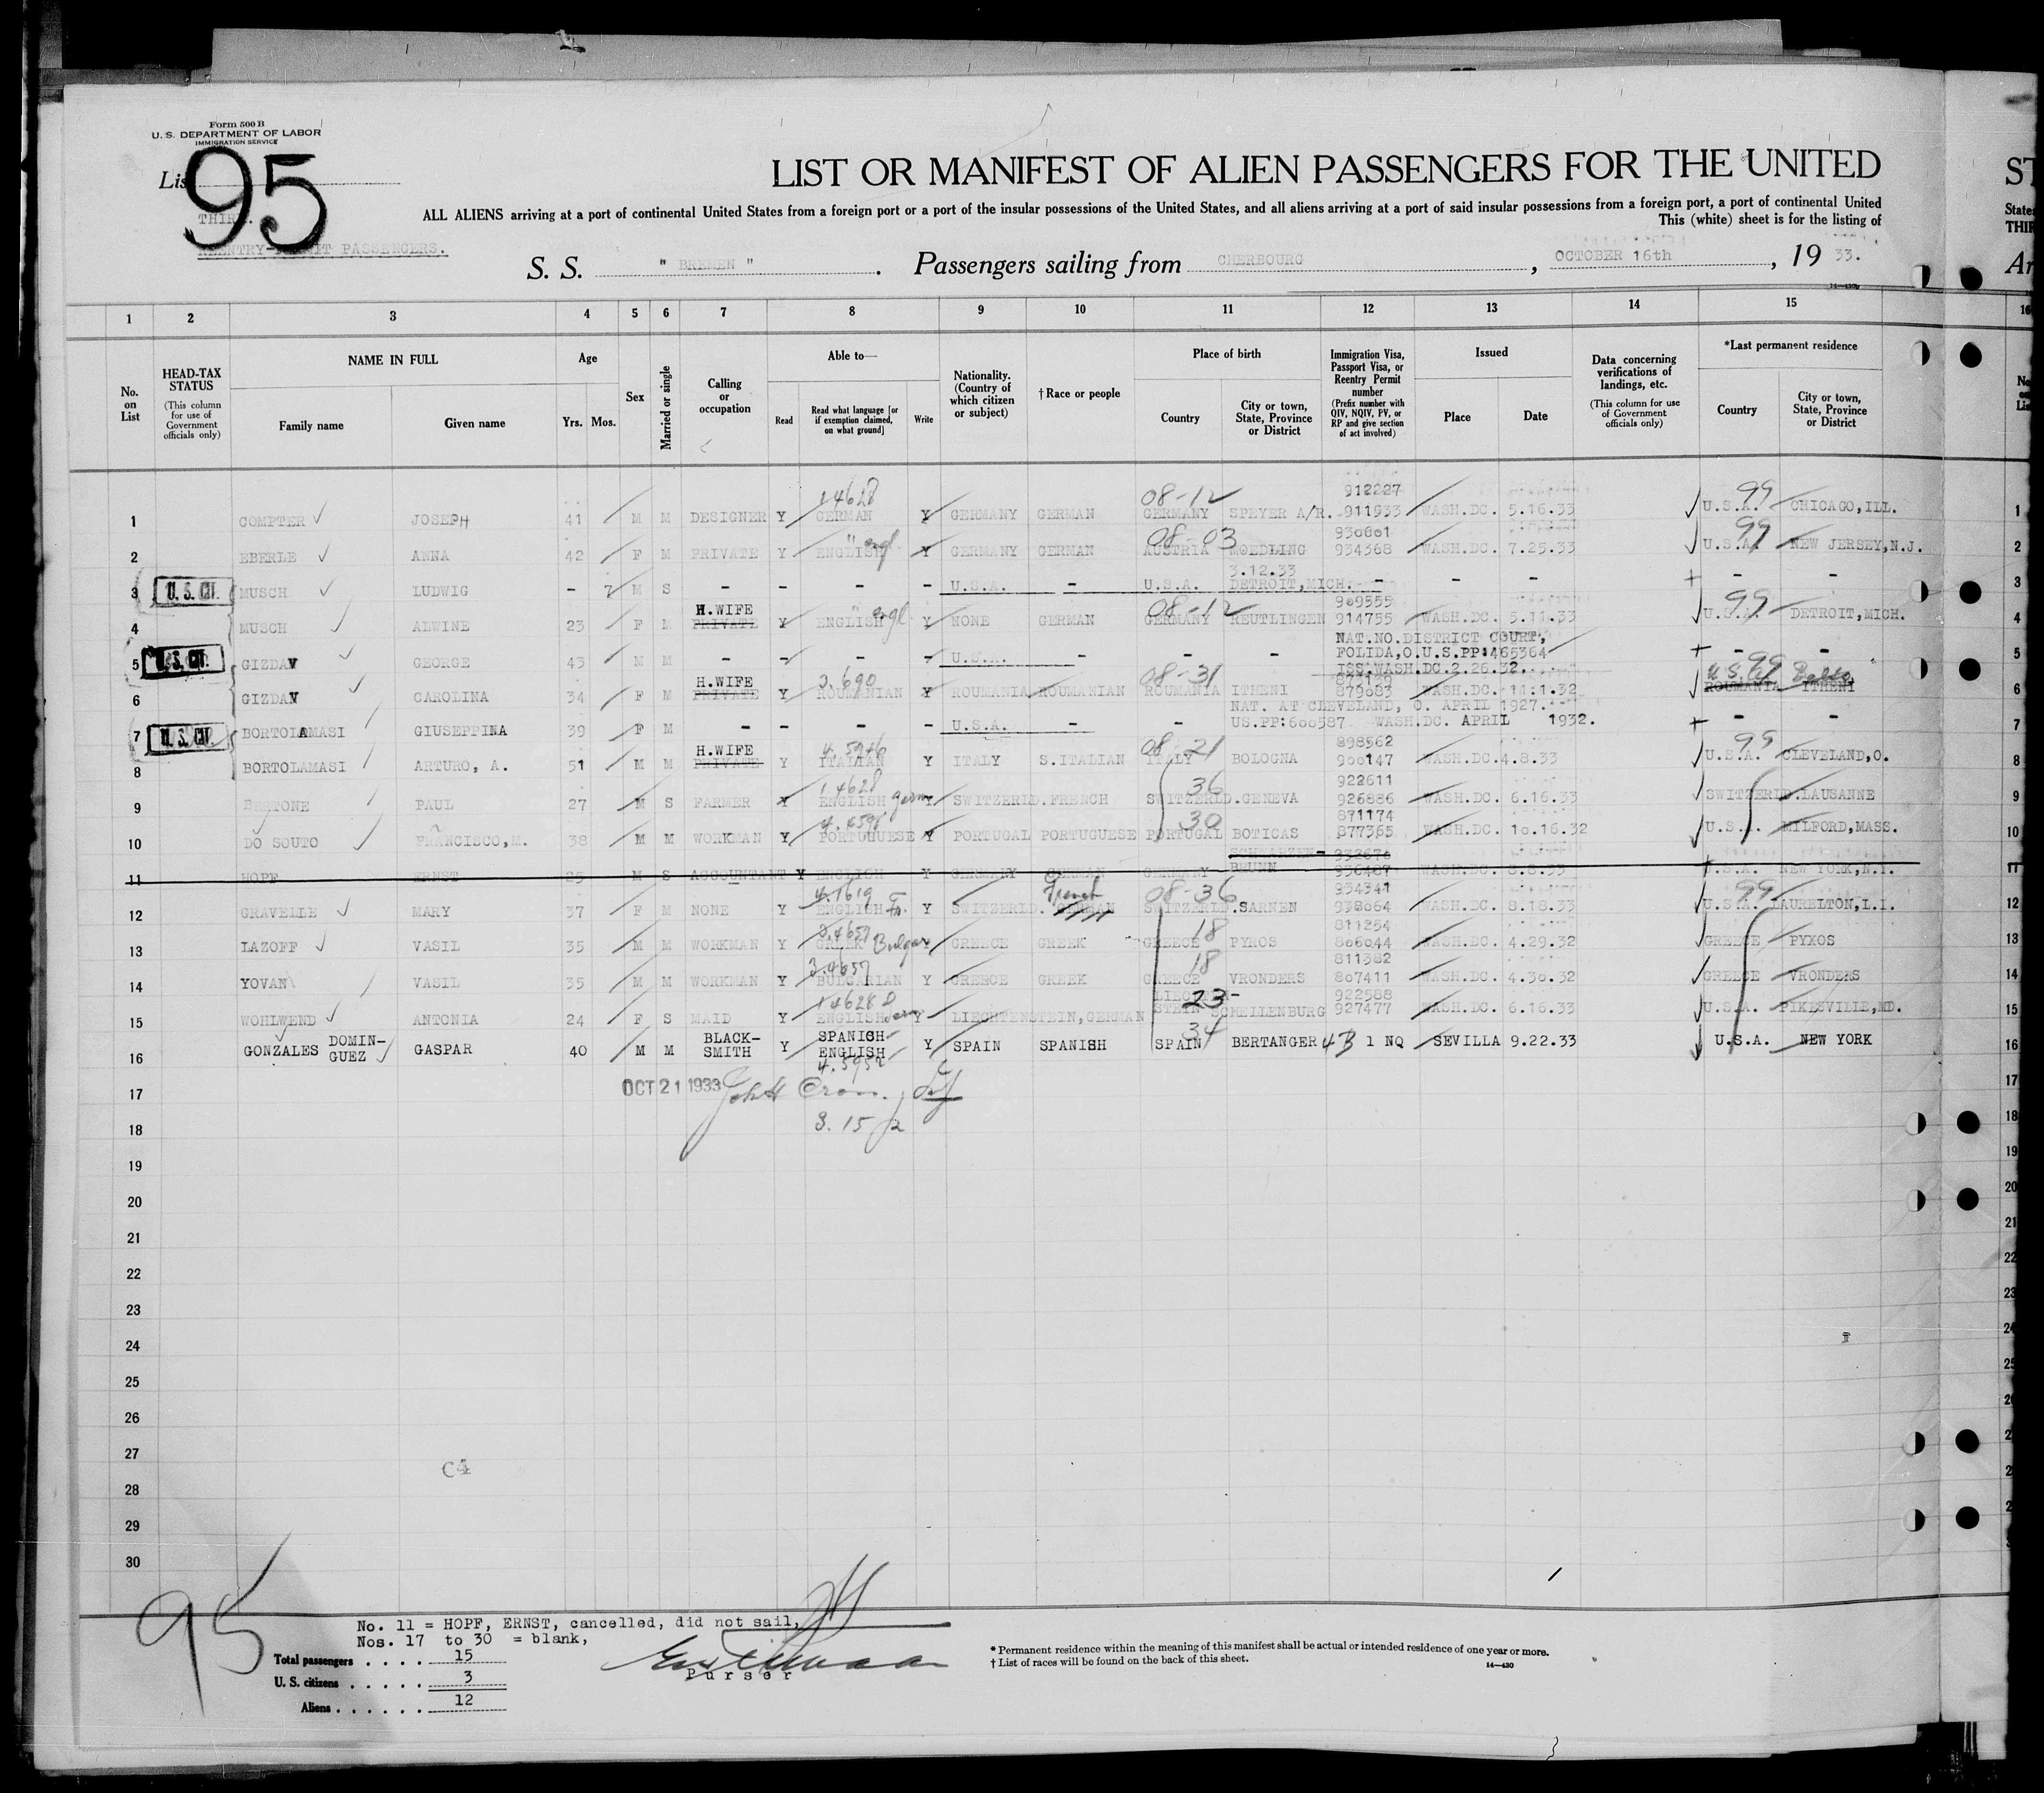 Form 500 B
U. S. DEPARTMENT OF LABOR
IMMIGRATION SERVICE
95
LIST OR MANIFEST OF ALIEN PASSENGERS FOR THE UNITED
ST
ALL ALIENS arriving at a port of continental United States from a foreign port or a port of the insular possessions of the United States, and all aliens arriving at a port of said insular possessions from a foreign port, a port of continental United
This (white) sheet is for the listing of
PASSENGERS.
S. S. " BREMEN " . Passengers sailing from CHERBOURG , OCTOBER 16th , 19 33.
1 2 3 4 5 6 7 8 9 10 11 12 13 14 15 16
No. on List
HEAD-TAX STATUS (This column for use of Government officials only)
NAME IN FULL
Family name Given name
Age
Yrs. Mos.
Sex
Married or single
Calling or occupation
Able to—
Read Read what language [or if exemption claimed, on what ground] Write
Nationality. (Country of which citizen or subject)
† Race or people
Place of birth
Country City or town, State, Province or District
Immigration Visa, Passport Visa, or Reentry Permit number (Prefix number with QIV, NQIV, PV, or RP and give section of act involved)
Issued
Place Date
Data concerning verifications of landings, etc. (This column for use of Government officials only)
*Last permanent residence
Country City or town, State, Province or District
14628 08-12 912227 99
1 COMPTER JOSEPH 41 M M DESIGNER Y GERMAN Y GERMANY GERMAN GERMANY SPEYER A/R. 911933 WASH.DC. 5.16.33 U.S.A. CHICAGO,ILL. 1
" engl 08-03 930801 99
2 EBERLE ANNA 42 F M PRIVATE Y ENGLISH Y GERMANY GERMAN AUSTRIA MOEDLING 934368 WASH.DC. 7.25.33 U.S.A. NEW JERSEY,N.J. 2
3.12.33
3 U.S. CIT. MUSCH LUDWIG - 7 M S - - - - U.S.A. - U.S.A. DETROIT,MICH. - - - + - - 3
H.WIFE " engl 08-12 909555 99
4 MUSCH ALWINE 23 F M PRIVATE Y ENGLISH Y NONE GERMAN GERMANY REUTLINGEN 914755 WASH.DC. 5.11.33 U.S.A. DETROIT,MICH. 4
NAT.NO.DISTRICT COURT,
5 U.S. CIT. GIZDAV GEORGE 43 M M - - - - U.S.A. - - - FOLIDA,O.U.S.PP:465364 + - - 5
ISS.WASH.DC.2.26.32.
H.WIFE 3.690 08-31 U.S.A. 99 Balto
6 GIZDAV CAROLINA 34 F M PRIVATE Y ROUMANIAN Y ROUMANIA ROUMANIAN ROUMANIA ITHENI 879683 WASH.DC. 11.1.32 ROUMANIA ITHENI 6
NAT. AT CLEVELAND, O. APRIL 1927.
7 U.S. CIT. BORTOLAMASI GIUSEPPINA 39 F M - - - - U.S.A. - - US.PP:600587 WASH.DC. APRIL 1932. + - - 7
H.WIFE 4.5946 08-21 898562 99
8 BORTOLAMASI ARTURO, A. 51 M M PRIVATE Y ITALIAN Y ITALY S.ITALIAN ITALY BOLOGNA 900147 WASH.DC.4.8.33 U.S.A. CLEVELAND,O. 8
14628 germ 36 922611
9 PAUL 27 M S FARMER Y ENGLISH Y SWITZERLD.FRENCH SWITZERLD.GENEVA 926886 WASH.DC. 6.16.33 SWITZERLD.LAUSANNE 9
30 871174
10 DO SOUTO FRANCISCO,M. 38 M M WORKMAN Y PORTUGUESE Y PORTUGAL PORTUGUESE PORTUGAL BOTICAS 877365 WASH.DC. 10.16.32 U.S.A. MILFORD,MASS. 10
SCHWARZEN- 932676
11 HOPF ERNST 25 M S ACCOUNTANT Y ENGLISH Y GERMANY GERMAN GERMANY BRUHN 936467 WASH.DC. 8.8.33 U.S.A. NEW YORK,N.Y. 11
4.1619 Fr. French 08-36 934341 99
12 GRAVELLE MARY 37 F M NONE Y ENGLISH Y SWITZERLD. GERMAN SWITZERLD.SARNEN 938864 WASH.DC. 8.18.33 U.S.A. LAURELTON,L.I. 12
Bulgar 18 811254
13 LAZOFF VASIL 35 M M WORKMAN Y Y GREECE GREEK GREECE PYROS 806044 WASH.DC. 4.29.32 GREECE PYXOS 13
3.4657 18 811382
14 YOVAN VASIL 35 M M WORKMAN Y BULGARIAN Y GREECE GREEK GREECE VRONDERS 807411 WASH.DC. 4.30.32 GREECE VRONDERS 14
14628 germ LIECHTEN- 23 922588
15 WOHLWEND ANTONIA 24 F S MAID Y ENGLISH Y LIECHTENSTEIN,GERMAN STEIN SCHELLENBURG 927477 WASH.DC. 6.16.33 U.S.A. PIKESVILLE,MD. 15
16 GONZALES DOMIN-GUEZ GASPAR 40 M M BLACK-SMITH Y SPANISH- ENGLISH Y SPAIN SPANISH SPAIN 34 BERTANGER 43 1 NQ SEVILLA 9.22.33 U.S.A. NEW YORK 16
4.5952
17 OCT 21 1933 17
18 3.15 18
19
20
21
22
23
24
25
26
27
28
29
30
No. 11 = HOPF, ERNST, cancelled, did not sail,
Nos. 17 to 30 = blank,
95
Total passengers . . . . 15
U. S. citizens . . . . . . 3
Aliens . . . . . . 12
Purser
* Permanent residence within the meaning of this manifest shall be actual or intended residence of one year or more.
† List of races will be found on the back of this sheet.
14—430